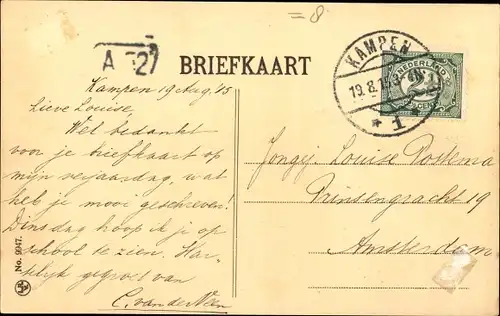 = 8
A 52
BRIEFKAART
KAMPEN
19.8.15
* 1
NEDERLAND
2½
CENT
Kampen 19 Aug. '15
Lieve Louise,
Wel bedankt
voor je briefkaart op
mijn verjaardag, wat
heb je mooi geschreven!
Dinsdag hoop ik je op
school te zien. Har-
telijk gegroet van
C. van der Veen
Jongej. Louise Postema
Prinsengracht 19
Amsterdam
No. 9947.